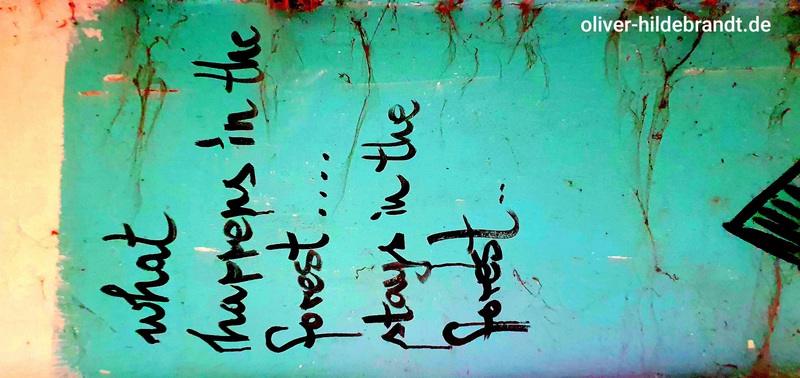 oliver-hildebrandt.de
what
happens in the
forest....
stays in the
forest..